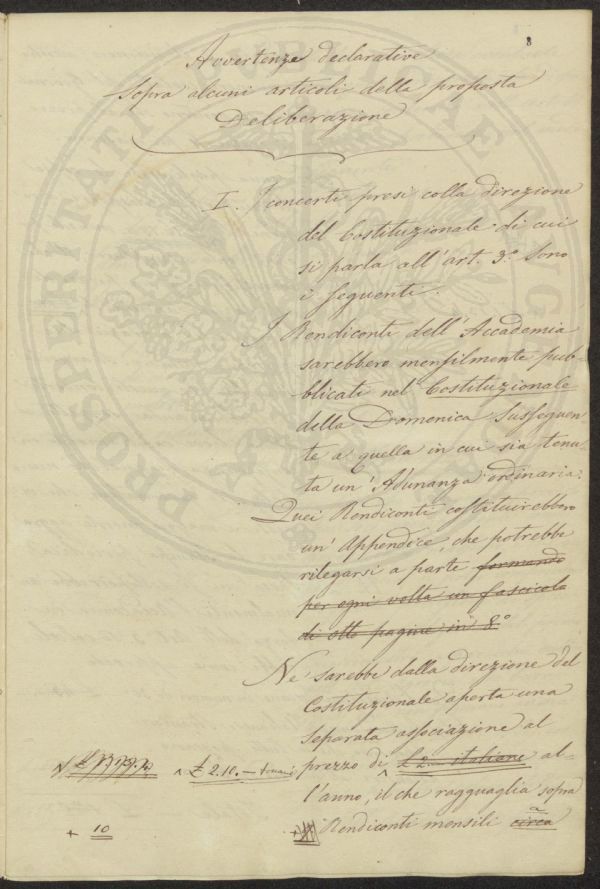 8
Avvertenze declarative
Sopra alcuni articoli della proposta
Deliberazione
I. I concerti presi colla direzione
del Costituzionale di cui
si parla all'art. 3.° sono
i seguenti.
I Rendiconti dell'Accademia
sarebbero mensilmente pub-
blicati nel Costituzionale
della Domenica susseguen
te a quella in cui sia tenu-
ta un'Adunanza ordinaria.
Quei Rendiconti costituirebbero
un'Appendice, che potrebbe
rilegarsi a parte formando
per ogni volta un fascicolo
di otto pagine in 8°
Ne sarebbe dalla direzione del
Costituzionale aperta una
separata associazione al
prezzo di £ 2 — italiane al-
£ 2.10.—
l'anno, il che ragguaglia sopra
+ 10
Rendiconti mensili circa
a
PROSPERITATI PUBLICAE AUG